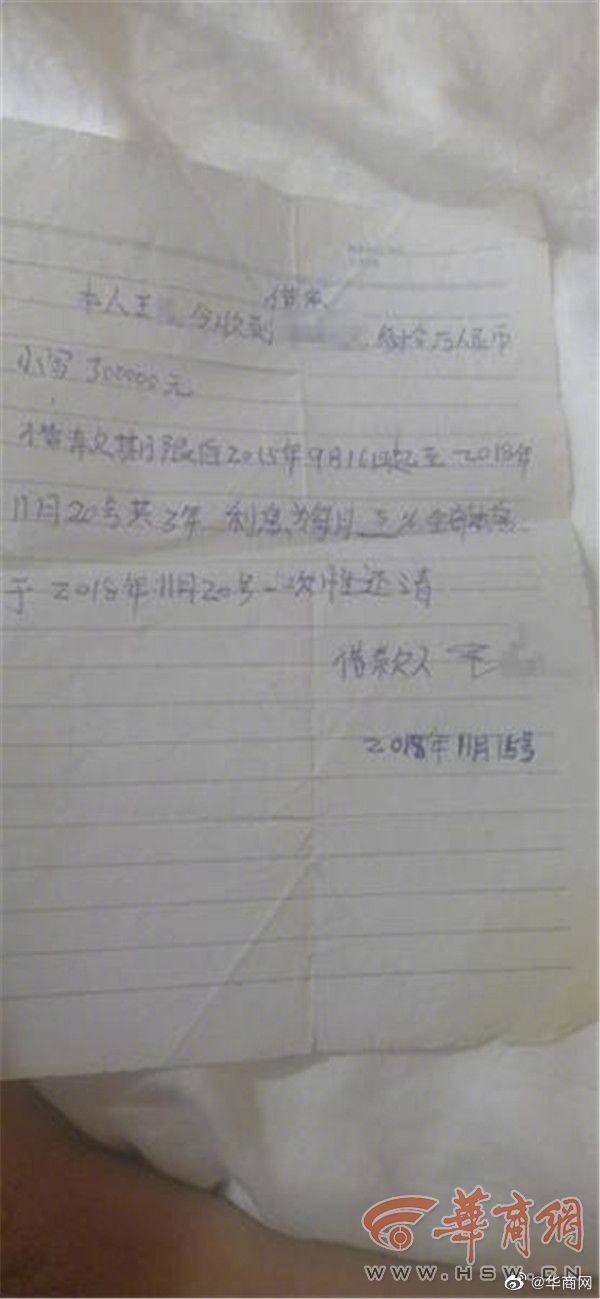 借条
本人王 今收到 叁拾万人民币
小写 300000元
借款期限自2015年9月16日起至2018年
11月20号共3年 利息为每月 % 全部
于2018年11月20号一次性还清
借款人 王
2018年11月15号
华商网
WWW.HSW.CN
@华商网